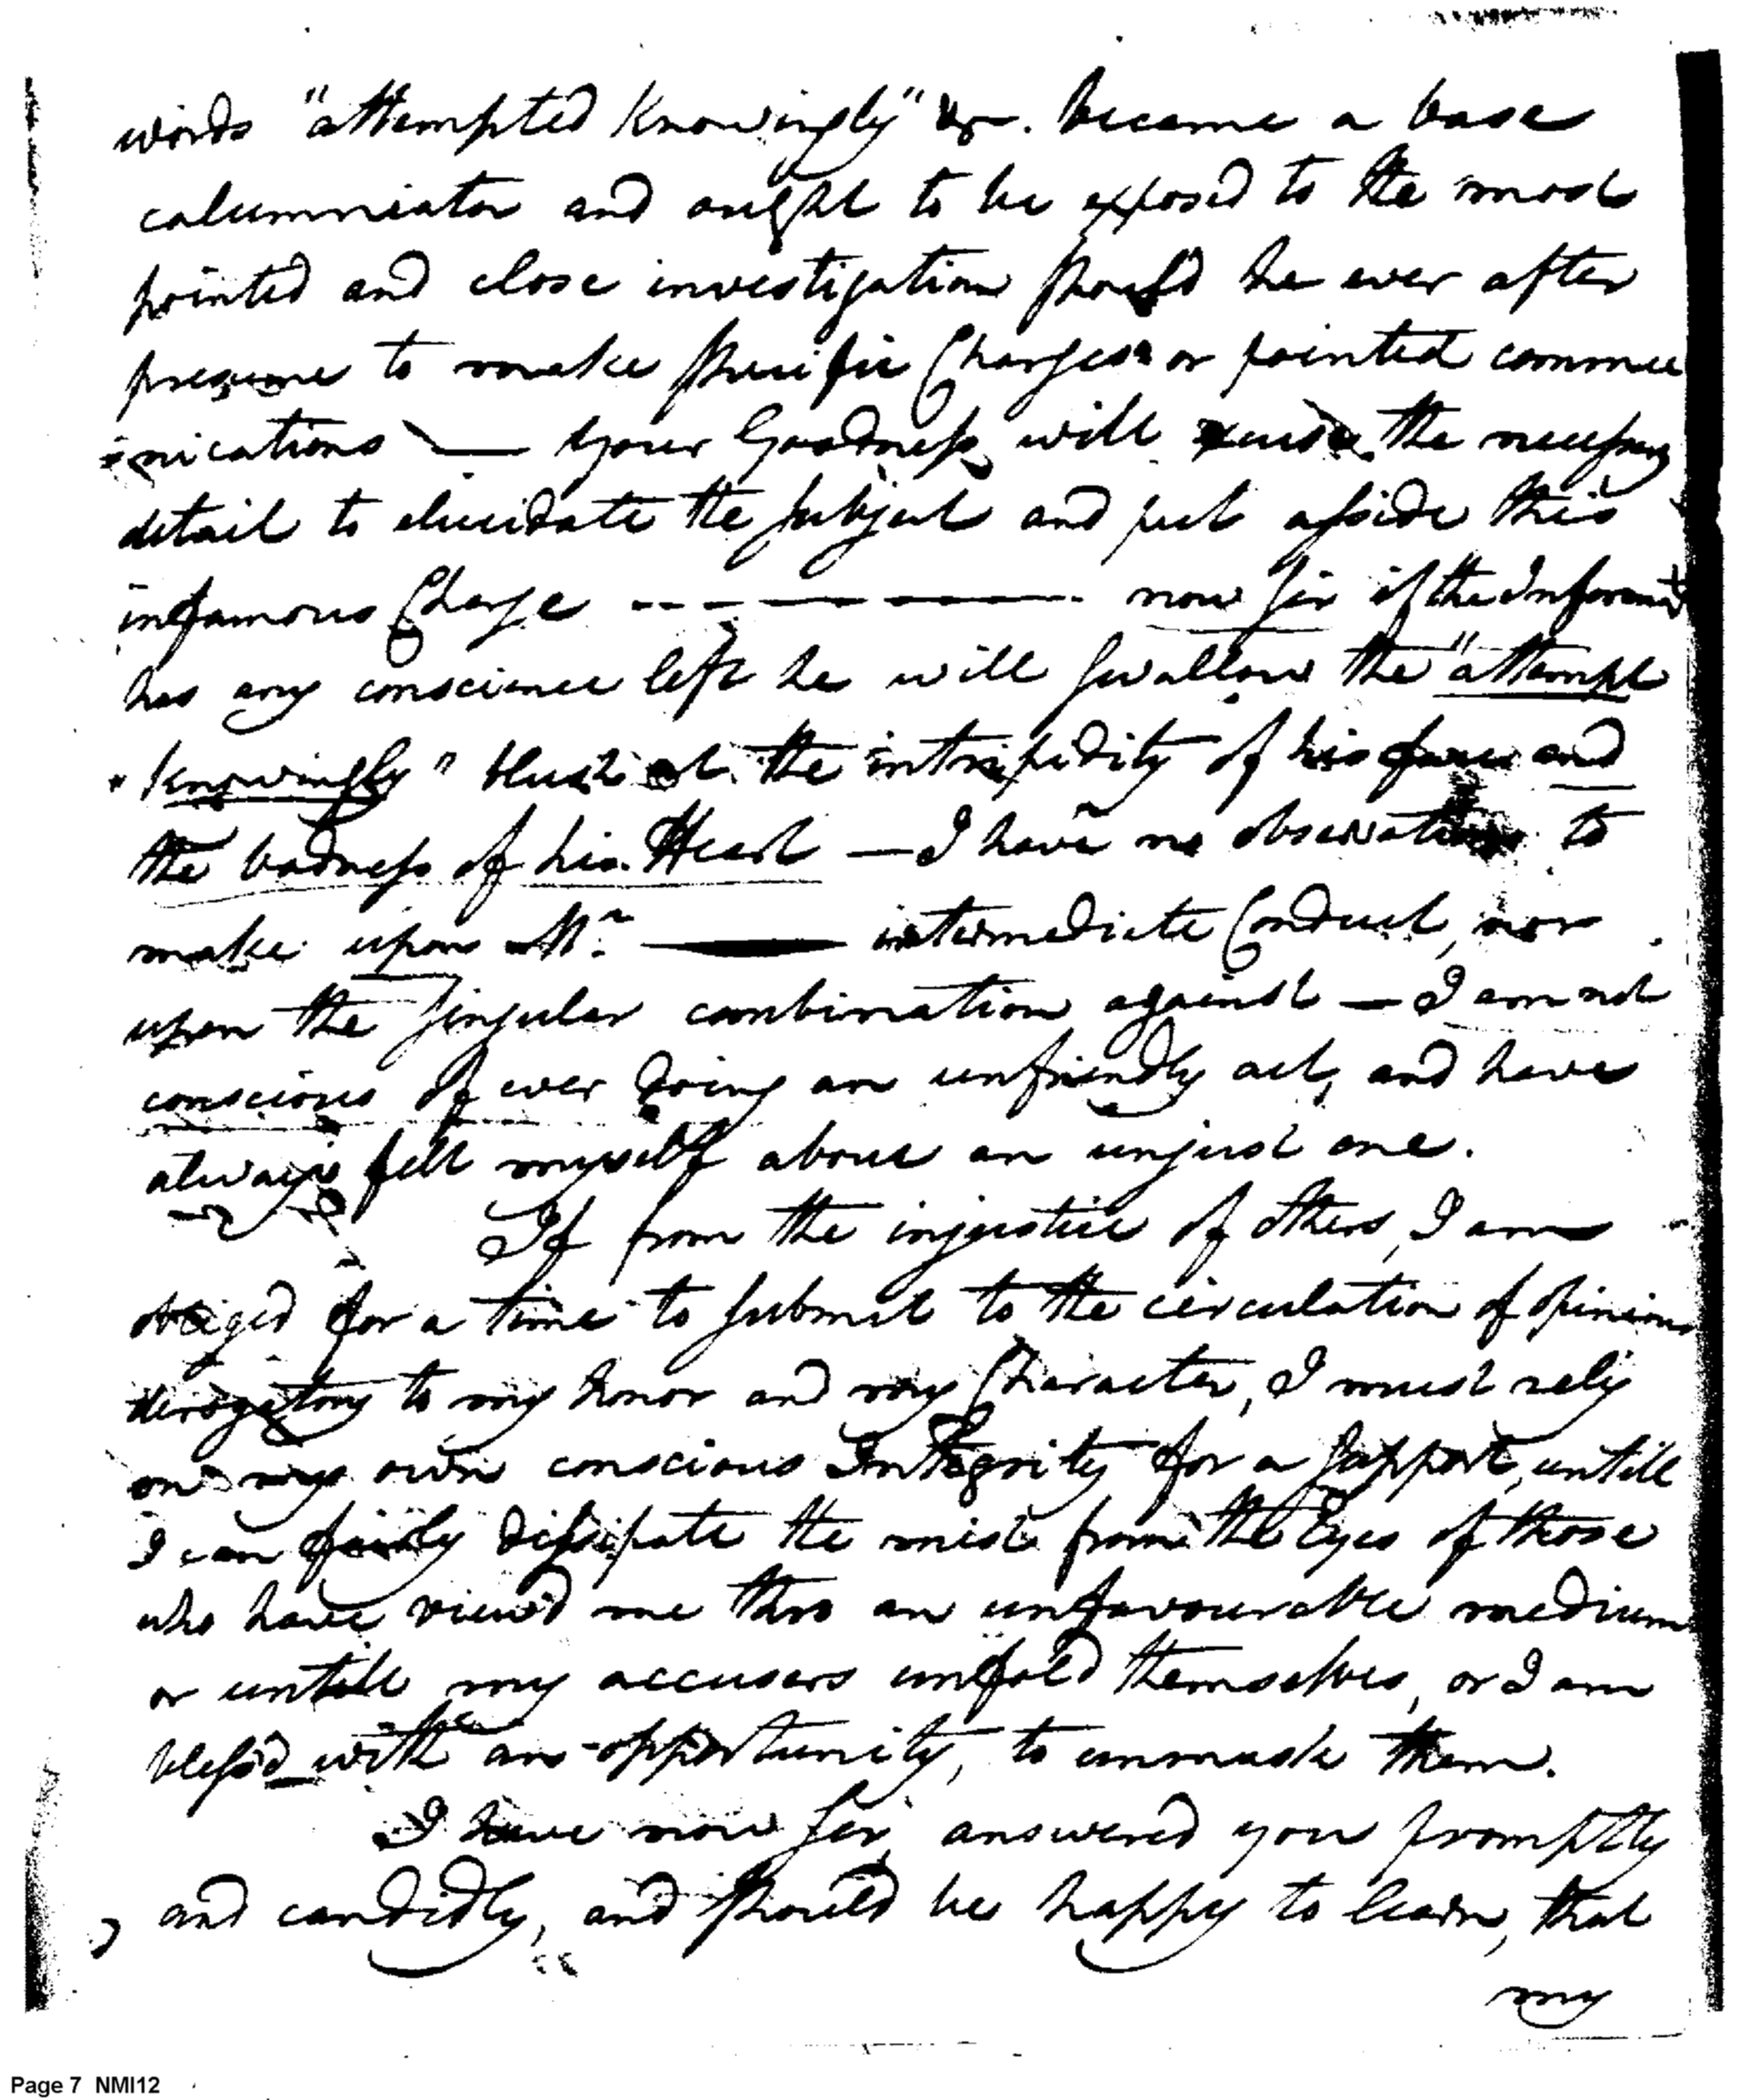 words "attempted Knowingly" &c. became a base
calumniator and ought to be exposed to the most
pointed and close investigation should he ever after
presume to make specific Charges or pointed commu
=nications — Your Goodness will excuse the necessary
detail to elucidate the subject and put asside this
infamous Charge -- - — — — - now sir if the Informant
has any conscience left he will swallow the "attempt
"Knowingly" blush at the intrepidity of his face and
the badness of his Heart — I have no observations to
make upon Mr. —— intermediate Conduct, nor
upon the singular combination against — I am not
conscious of ever doing an unfriendly act, and have
always felt myself above an unjust one.
If from the injustice of others, I am
obliged for a time to submit to the circulation of opinions
derogatory to my honor and my Character, I must rely
on my own conscious Integrity for a support, untill
I can fairly dissipate the mist from the Eyes of those
who have view'd me thro an unfavourable medium
or untill my accusers unfold themselves, or I am
bless'd with an opportunity, to unmask them.
I have now sir, answered you promptly
and candidly, and should be happy to learn, that
my
Page 7 NMI12